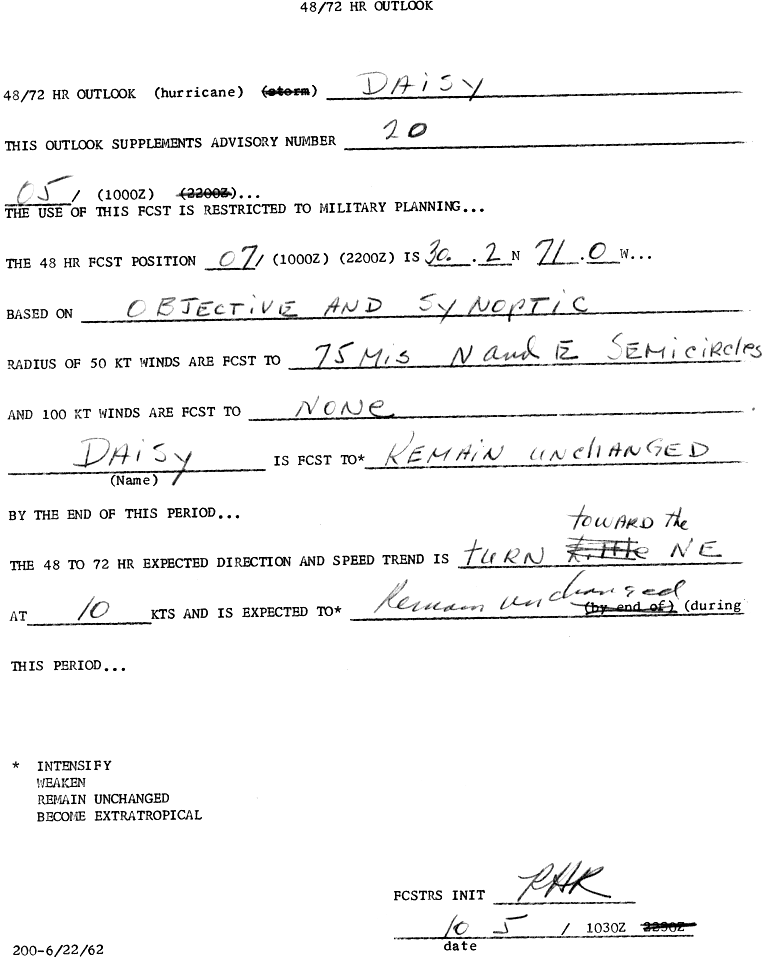 48/72 HR OUTLOOK
48/72 HR OUTLOOK (hurricane) (storm) DAiSy
THIS OUTLOOK SUPPLEMENTS ADVISORY NUMBER 20
05/ (1000Z) (2200Z)...
THE USE OF THIS FCST IS RESTRICTED TO MILITARY PLANNING...
THE 48 HR FCST POSITION 07/ (1000Z) (2200Z) IS 30..2 N 71.0 W...
BASED ON OBJECTIVE AND SyNOPTIC
RADIUS OF 50 KT WINDS ARE FCST TO 75 Mis N and E SEMiciRcles
AND 100 KT WINDS ARE FCST TO NONe
DAiSy IS FCST TO* REMAiN unchANGED
(Name)
BY THE END OF THIS PERIOD...
toWARD the
THE 48 TO 72 HR EXPECTED DIRECTION AND SPEED TREND IS tuRN NE
AT 10 KTS AND IS EXPECTED TO* Remain unchanged (by end of) (during
THIS PERIOD...
* INTENSIFY
WEAKEN
REMAIN UNCHANGED
BECOME EXTRATROPICAL
FCSTRS INIT RHR
10 5 / 1030Z 2230Z
date
200-6/22/62